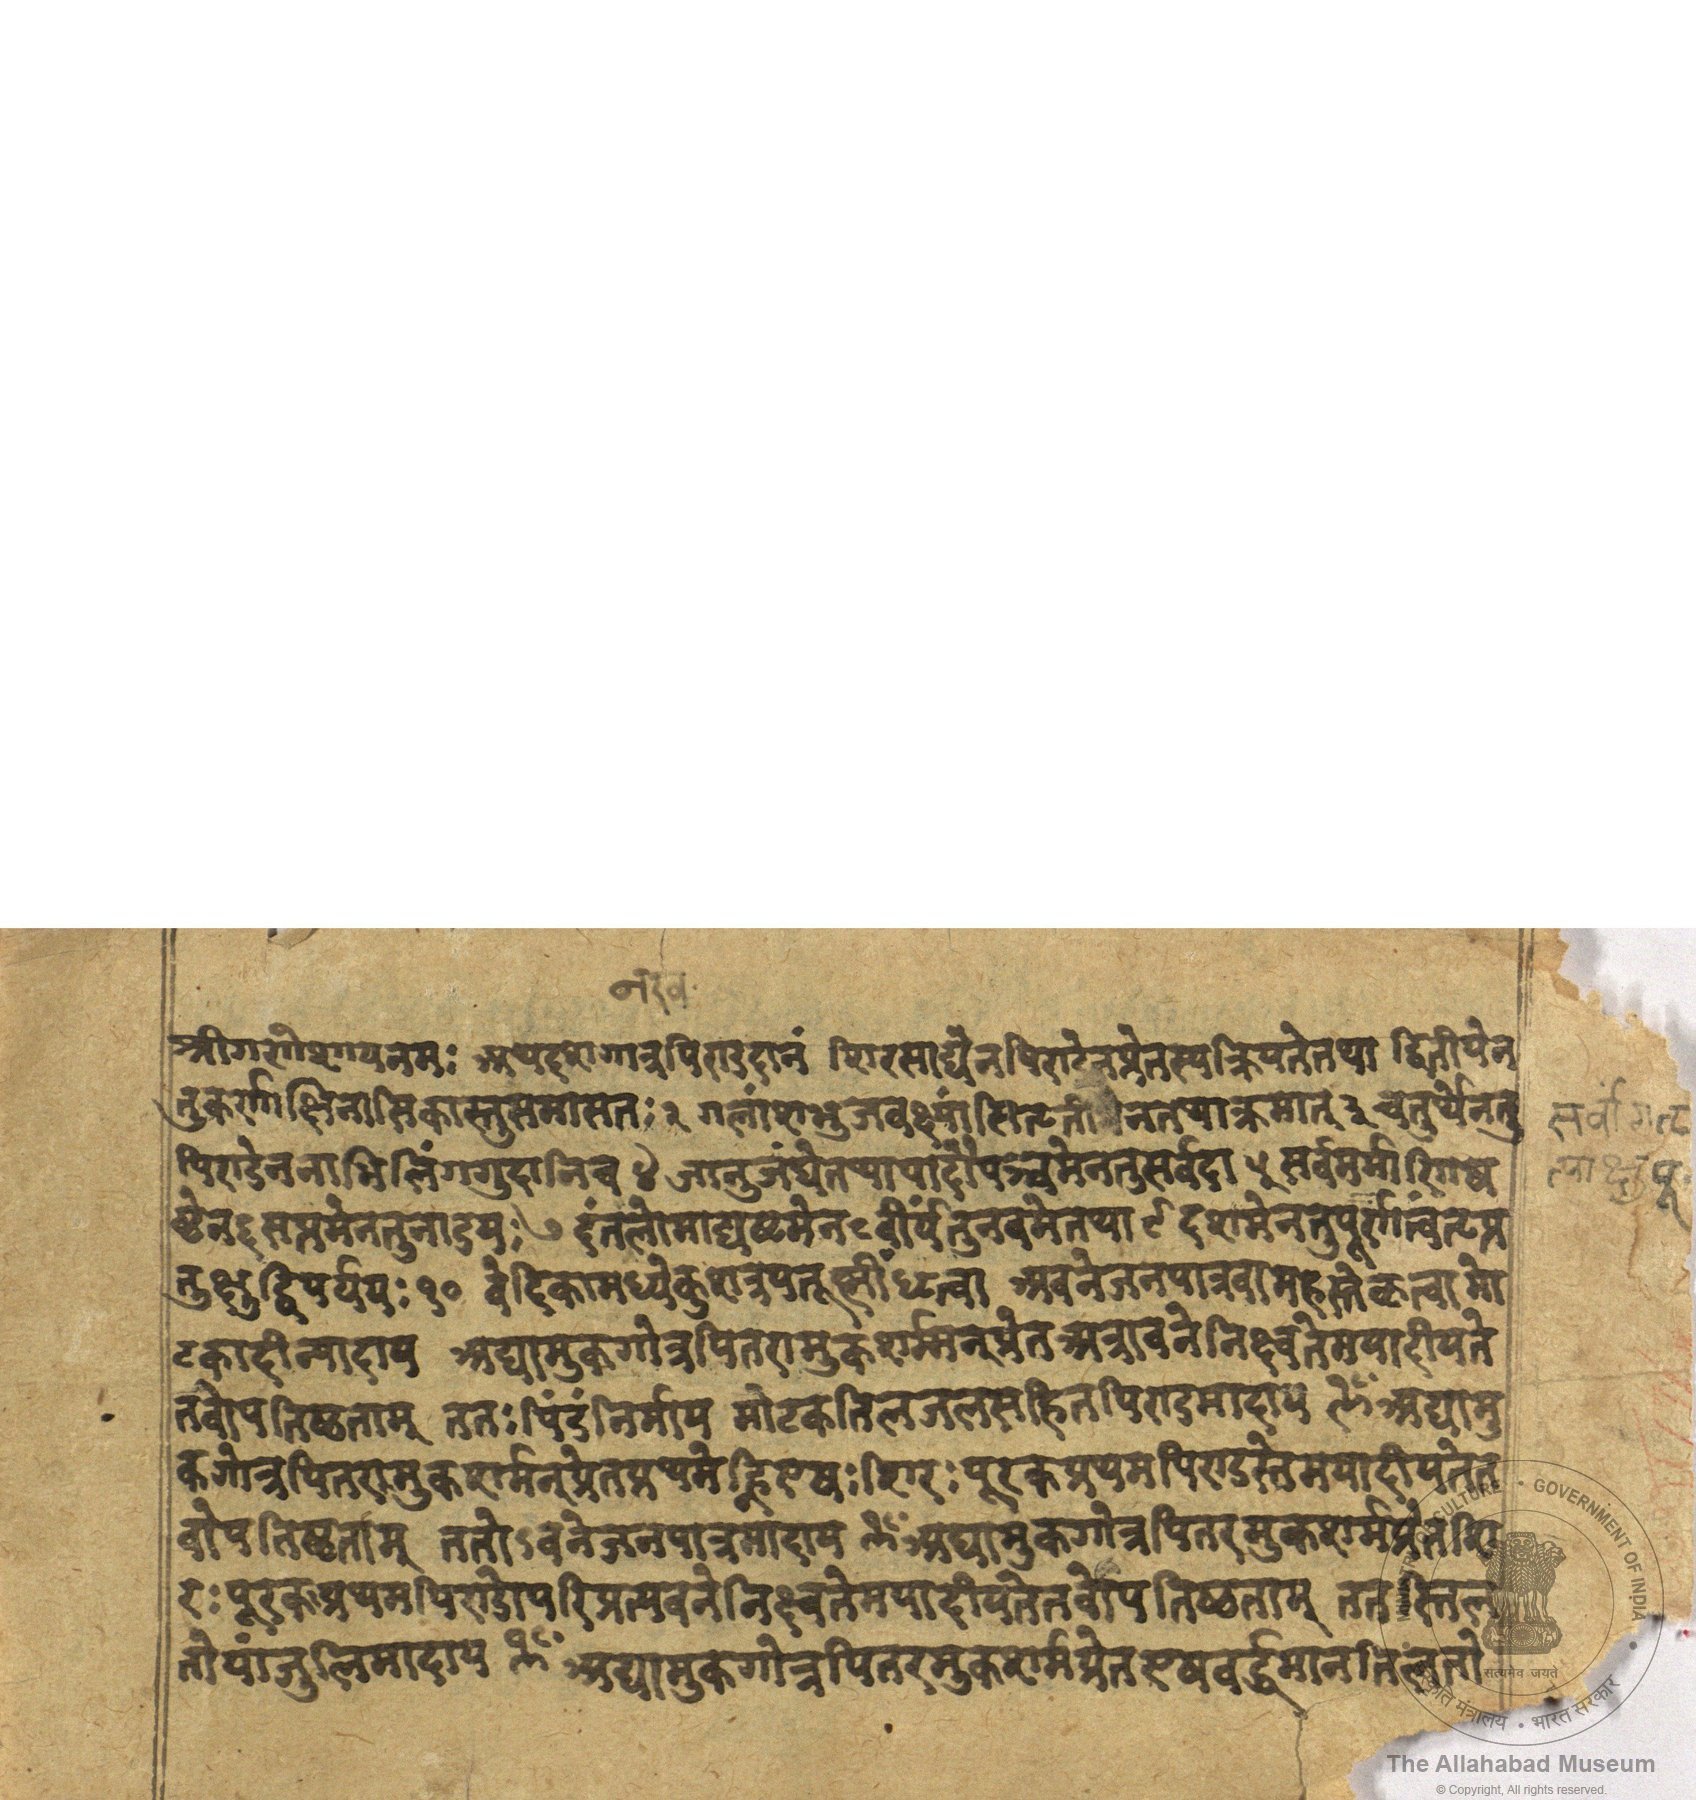 श्रीगणेशायनमः अथदशगात्रपिण्डदानं शिरसाद्येनपिण्डेनप्रेतस्यक्रियतेतथा द्वितीयेन
तुकर्णाक्षिनासिकास्तुसमासतः २ गलांशभुजवक्षांसितृतीयेनतथाक्रमात् ३ चतुर्थेनतु
पिण्डेननाभिलिंगगुदानिच ४ जानुजंघेतथापादौपञ्चमेनतुसर्वदा ५ सर्वमर्माणिष
ष्ठेन६सप्तमेनतुनाडयः ७ दंतलोमाद्यष्टमेन८वीर्यंतुनवमेनतथा ९ दशमेनतुपूर्णत्वंतृप्त
तुक्षुद्विपर्ययः १० वेदिकामध्येकुशत्रयंतूष्णींधृत्वा अवनेजनपात्रंवामहस्तेकृत्वामो
टकादीन्यादाय अद्यामुकगोत्रपितरामुकशर्म्मन्प्रेतअत्रावनेनिक्ष्वतेमयादीयते
तवोपतिष्ठताम् ततः पिंडंनिर्माय मोटकतिलजलसहितपिण्डमादाय ॐअद्यामु
कगोत्रपितरामुकशर्मन्प्रेतप्रथमेह्निएषः शिरः पूरकप्रथमपिण्डस्तेमयादीयतेत
वोपतिष्ठताम् ततोऽवनेजनपात्रमादाय ॐअद्यामुकगोत्रपितरमुकशर्मप्रेतशि
रः पूरकप्रथमपिण्डोपरिप्रत्यवनेनिक्ष्वतेमयादीयतेतवोपतिष्ठताम् ततस्तिल
तोयांजुलिमादाय ॐअद्यामुकगोत्रपितरमुकशर्मप्रेतएषवर्द्धमानतिलतो
सत्यमेव जयते
MINISTRY OF CULTURE • GOVERNMENT OF INDIA
संस्कृति मंत्रालय • भारत सरकार
The Allahabad Museum
© Copyright, All rights reserved.